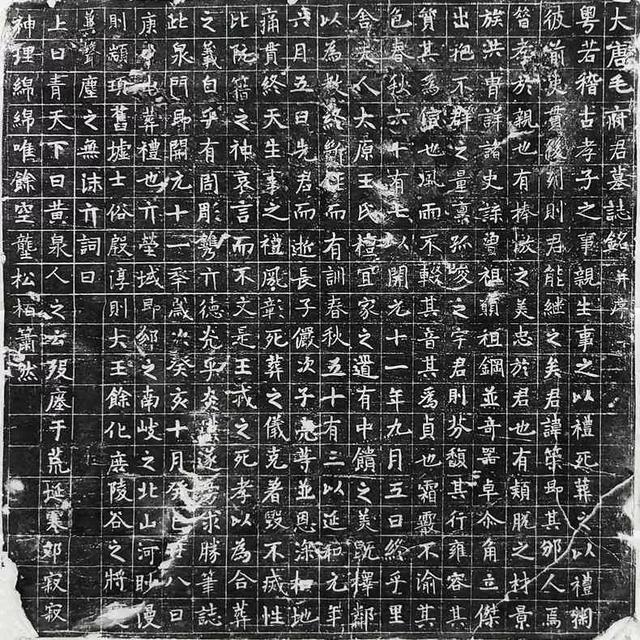 大唐毛府君墓誌銘并序
粤若稽古孝子之事親生事之以禮死葬之以禮
彼前史貫 則君能繼之矣君諱 即其邠人焉
昝孝於親也有捧 之美忠於君也有穎脱之材景
族洪冑詳諸史諜曾祖 祖鋼並奇器卓尒角立傑
出挹不群之量禀孤峻之宇君則芬馥其行雍容其
質其爲 也風而不輟其音其爲貞也霜 不渝其
色春秋六十有七以開元十一年九月五日終乎里
舍夫人太原王氏 宜家之道有中饋之美既擇鄰
以為教終斷 而有訓春秋五十有二以延和元年
六月五日先君而逝長子儼次子亮等並恩深 地
痛貫終天生事之禮 彰死葬之儀克著毀不滅性
比阮籍之神哀言而不文是王戎之死孝以為合葬
之義自乎有周彫 亓德光乎炎漢遂 求勝筆誌
此泉門即開元十一年歲次癸亥十月 八日
庚 葬禮也亓塋域即邠之南岐之北山河眇漫
則顓頊舊墟士俗殷淳則大王餘化庶陵谷之將
冀聲塵之無沫亓詞曰
上曰青天下曰黄泉人之云 塵于荒埏 郊寂寂
神理綿綿唯餘空壟松栢蕭然